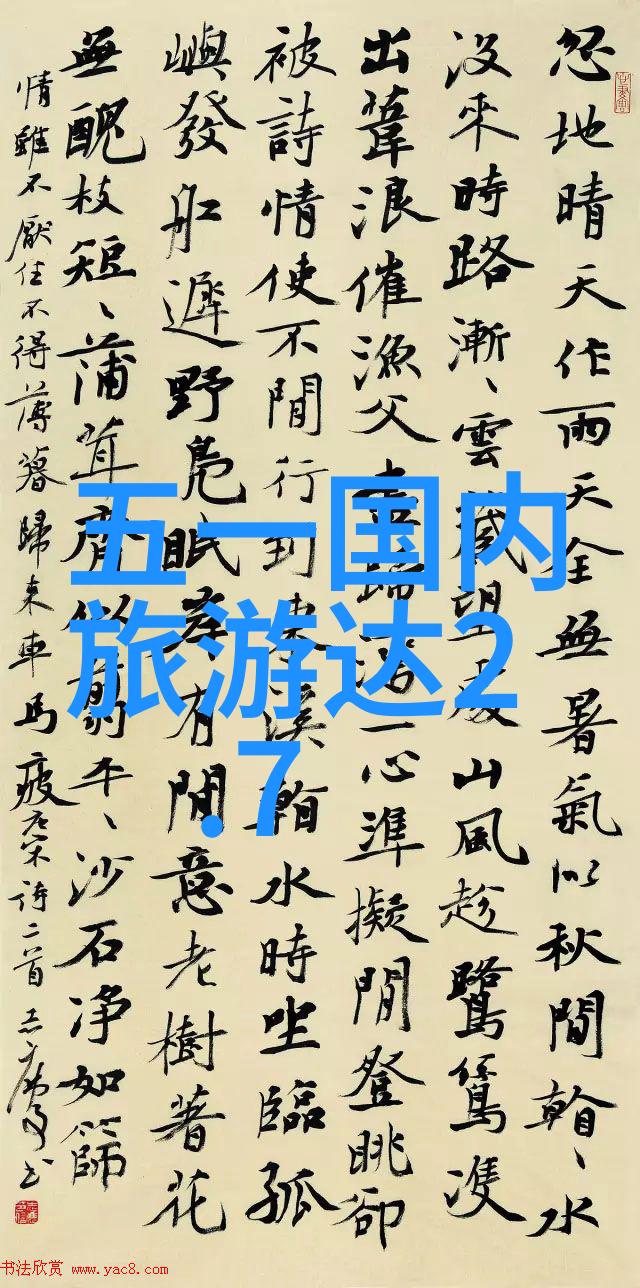 忽地晴天作雨天全無暑氣似秋間看、水
沒來時路漸、雲藏望處山風趁鷺鷥雙
出葦浪催漁父盡歸灣一心準擬閒登眺卻
被詩情使不閒行到東溪看水時坐臨孤
嶼發船遲野鳧眠岸有閒意老樹著花
無醜枝短、蒲茸齊似剪平、沙石淨如篩
情雖不厭住不得薄暮歸來車馬疲右宋詩二首
五一国内
旅游达2
.7
书法欣赏 www.yac8.com